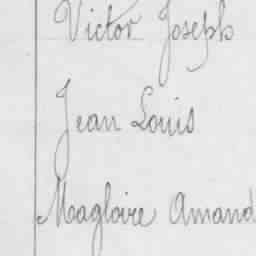 Victor Joseph
Jean Louis
Magloire Amand